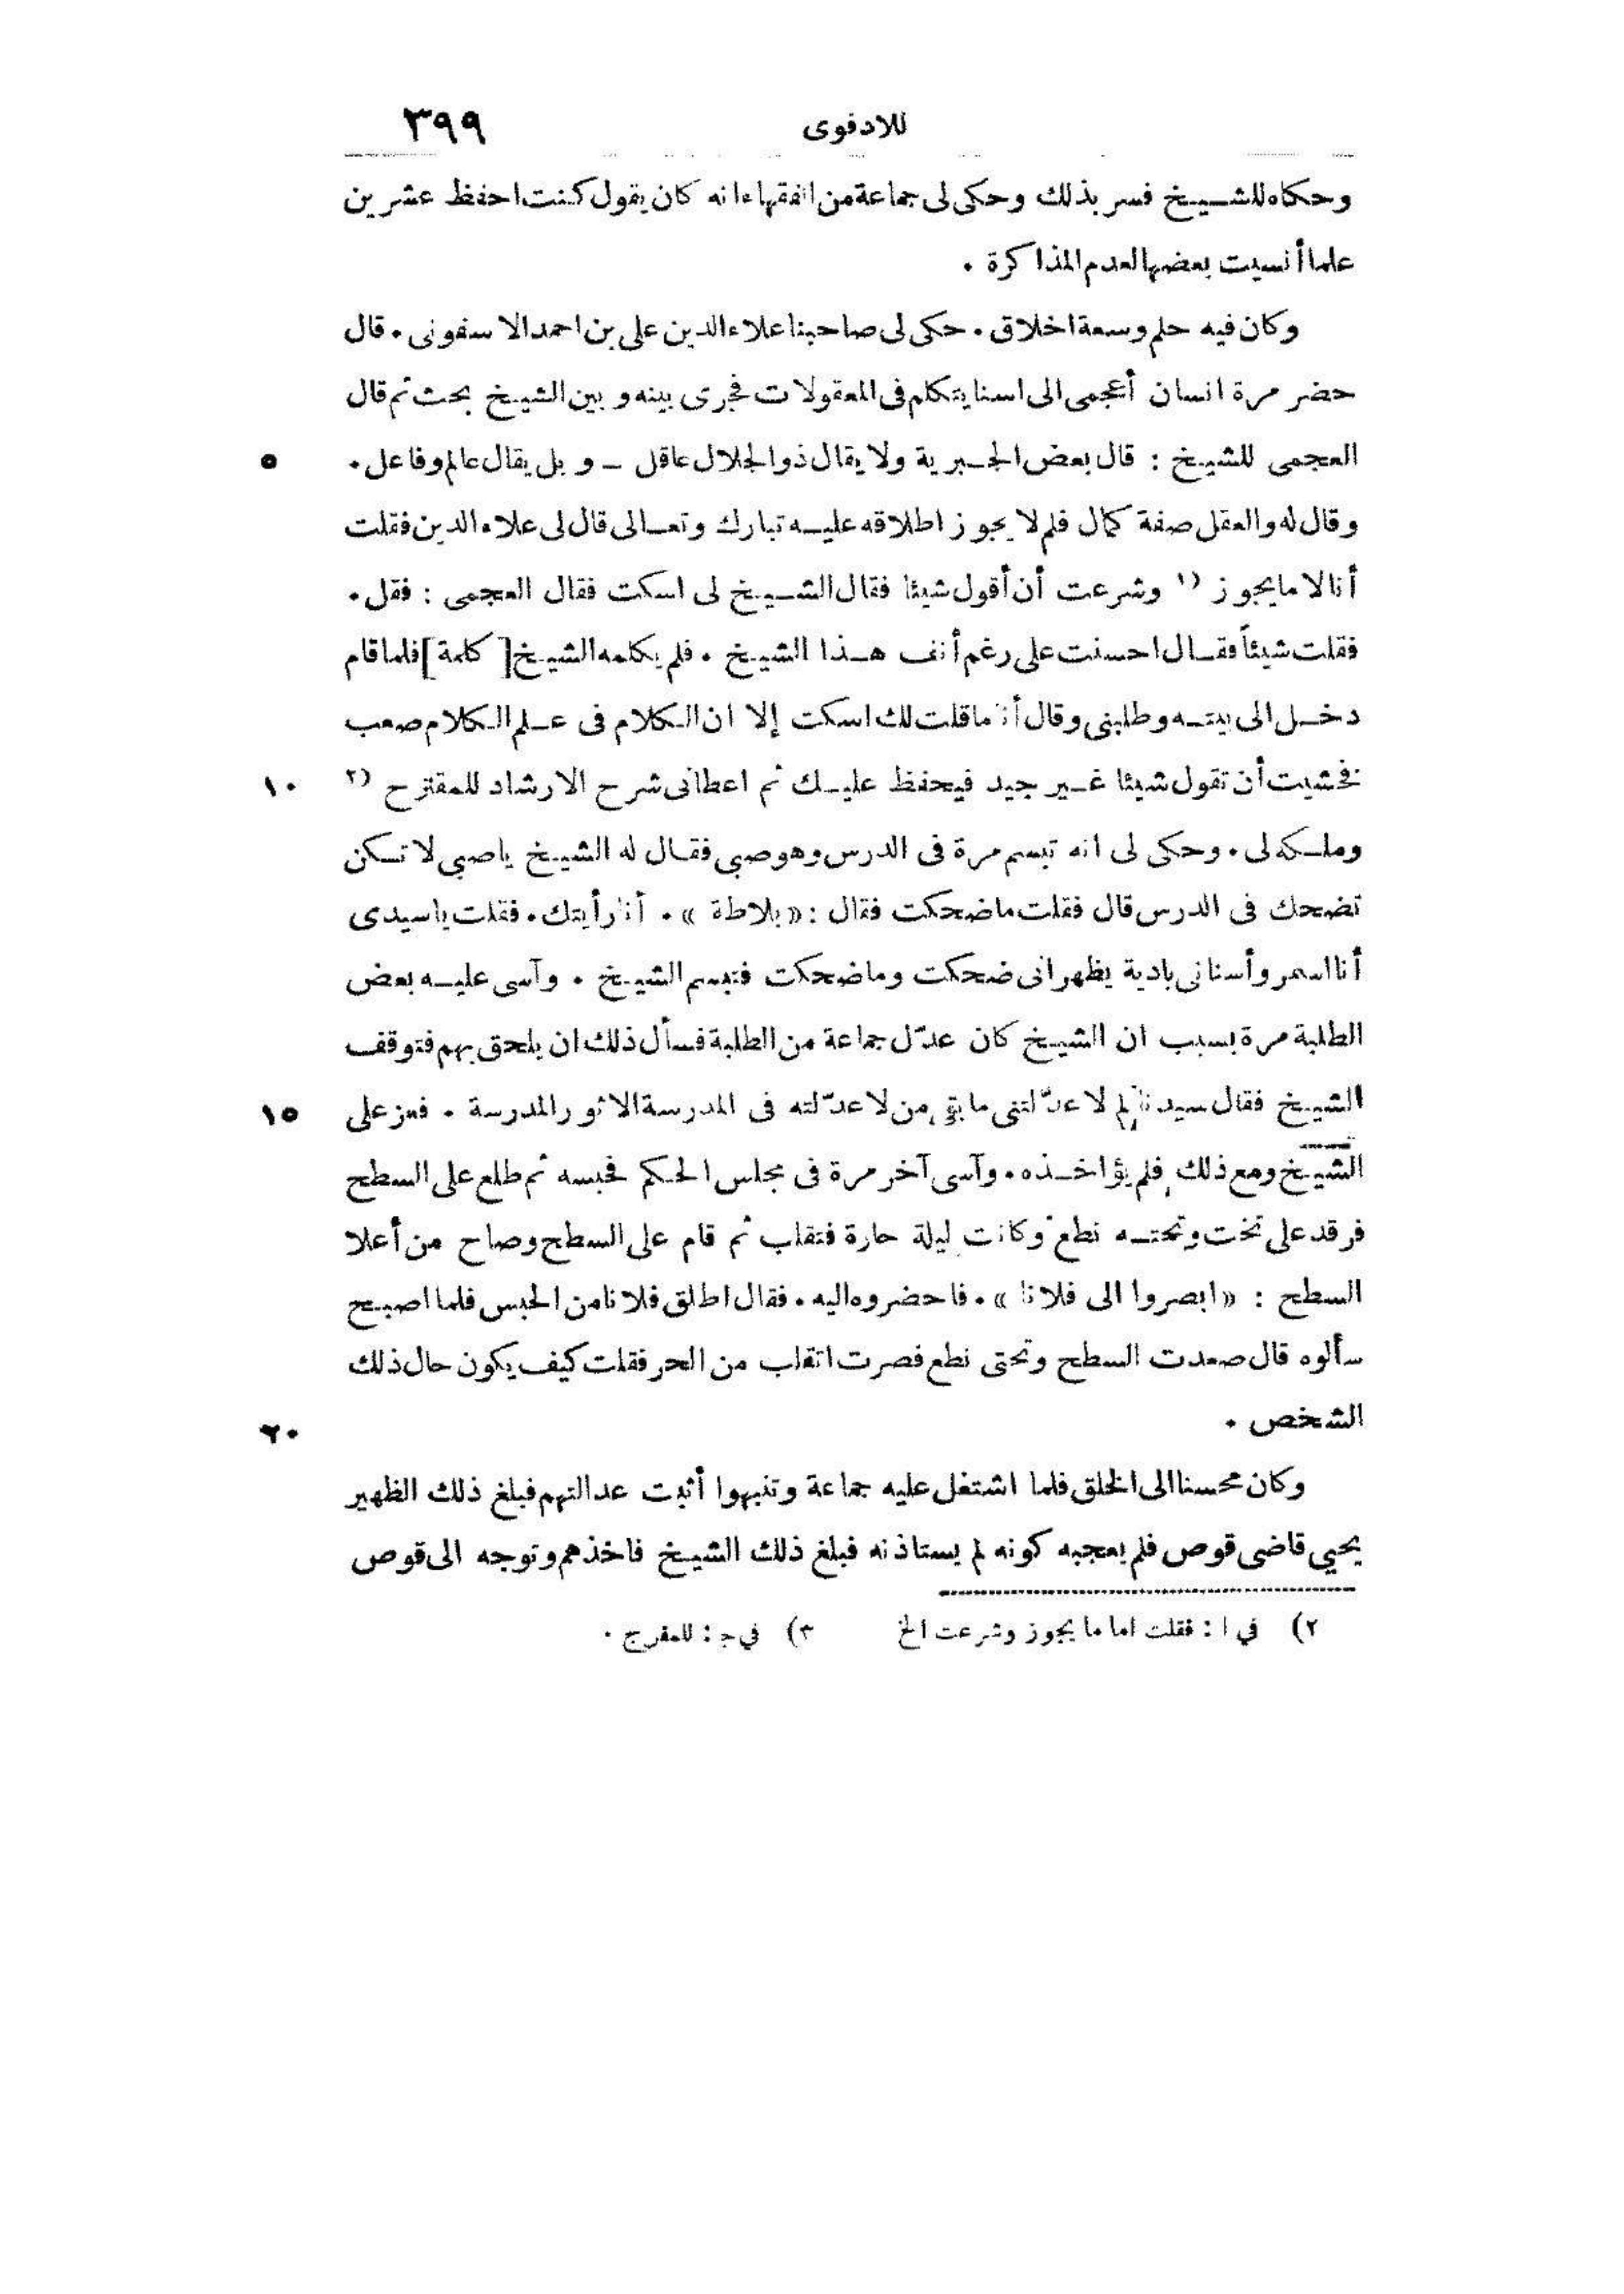 للادفوى ٣٩٩
وحكاه للشيخ فسر بذلك وحكى لى جماعة من الفقهاء انه كان يقول كنت احفظ عشرين
علما أنسيت بعضها لعدم المذاكرة .
وكان فيه حلم وسعة اخلاق . حكى لى صاحبنا علاء الدين على بن احمد الاسفونى . قال
حضر مرة انسان أعجمى الى اسنا يتكلم فى المعقولات فجرى بينه وبين الشيخ بحث ثم قال
العجمى للشيخ : قال بعض الجبرية ولا يقال ذو الجلال عاقل - و بل يقال عالم وفاعل . ٥
وقال له والعقل صفة كمال فلم لا يجوز اطلاقه عليه تبارك وتعالى قال لى علاء الدين فقلت
أنا لا ما يجوز (١ وشرعت أن أقول شيئا فقال الشيخ لى اسكت فقال العجمى : فقل .
فقلت شيئاً فقال احسنت على رغم أنف هذا الشيخ . فلم يكلمه الشيخ [ كلمة ] فلما قام
دخل الى بيته وطلبنى وقال أنا ما قلت لك اسكت إلا ان الكلام فى علم الكلام صعب
فخشيت أن تقول شيئا غير جيد فيحفظ عليك ثم اعطانى شرح الارشاد للمقترح (٢ ١٠
وملكه لى . وحكى لى انه تبسم مرة فى الدرس وهو صبى فقال له الشيخ ياصبى لا تكن
تضحك فى الدرس قال فقلت ما ضحكت فقال : « بلاطة » . أنا رأيتك . فقلت ياسيدى
أنا اسمر وأسنانى بادية يظهر انى ضحكت وما ضحكت فتبسم الشيخ . وآسى عليه بعض
الطلبة مرة بسبب ان الشيخ كان عدّل جماعة من الطلبة فسأل ذلك ان يلحق بهم فتوقف
الشيخ فقال سيدنا لِم لا عدّلتنى ما بقى من لا عدّلته فى المدرسة الا ثور المدرسة . فعز على ١٥
الشيخ ومع ذلك فلم يؤاخذه . وآسى آخر مرة فى مجلس الحكم فحبسه ثم طلع على السطح
فرقد على تخت وتحته نطع وكانت ليلة حارة فتقلب ثم قام على السطح وصاح من أعلا
السطح : « ابصروا الى فلانا » . فاحضروه اليه . فقال اطلق فلانا من الحبس فلما اصبح
سألوه قال صعدت السطح وتحتى نطع فصرت اتقلب من الحر فقلت كيف يكون حال ذلك
الشخص . ٢٠
وكان محسنا الى الخلق فلما اشتغل عليه جماعة وتنبهوا أثبت عدالتهم فبلغ ذلك الظهير
يحيى قاضى قوص فلم يعجبه كونه لم يستاذنه فبلغ ذلك الشيخ فاخذهم وتوجه الى قوص
٢) في ا : فقلت اما ما يجوز وشرعت الخ ٣) في ج : للمفرج .